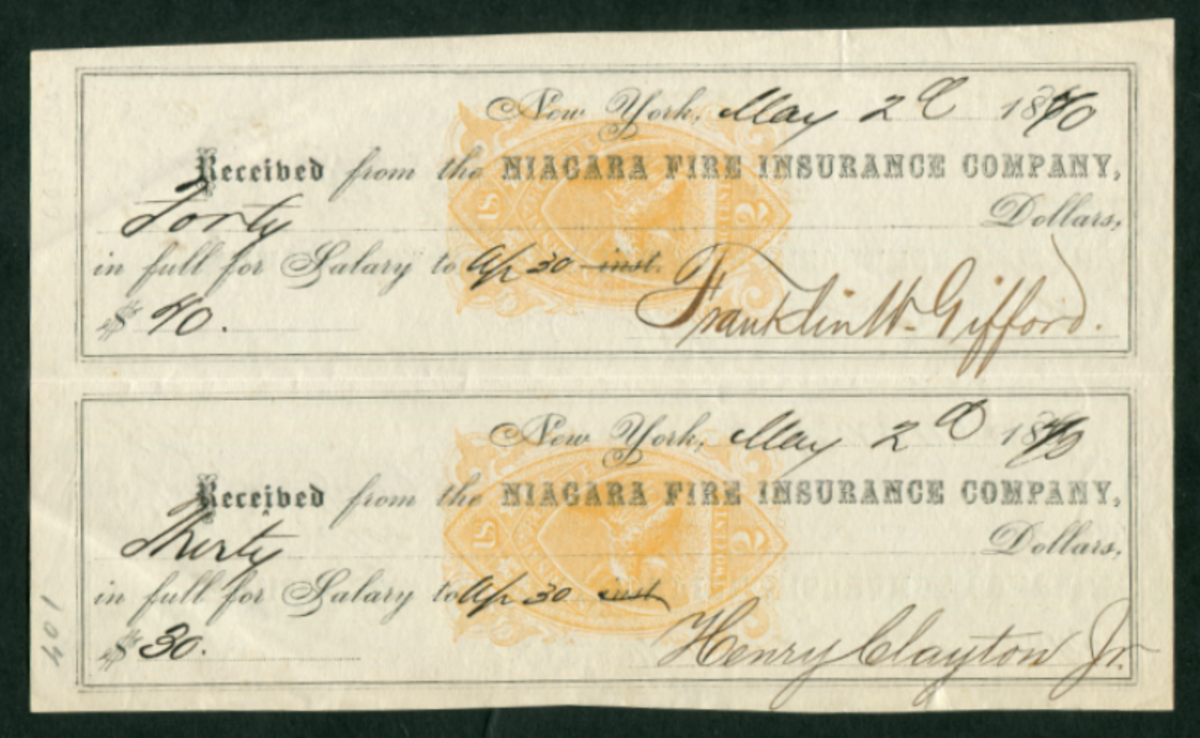 New York, May 2d 1870
Received from the NIAGARA FIRE INSURANCE COMPANY,
Forty Dollars,
in full for Salary to Ap 30 inst.
$ 40.
Franklin W. Gifford.
New York, May 2d 1870
Received from the NIAGARA FIRE INSURANCE COMPANY,
Thirty Dollars,
in full for Salary to Ap 30 inst
$ 30.
Henry Clayton Jr.
U.S.
TWO CENTS
2
104